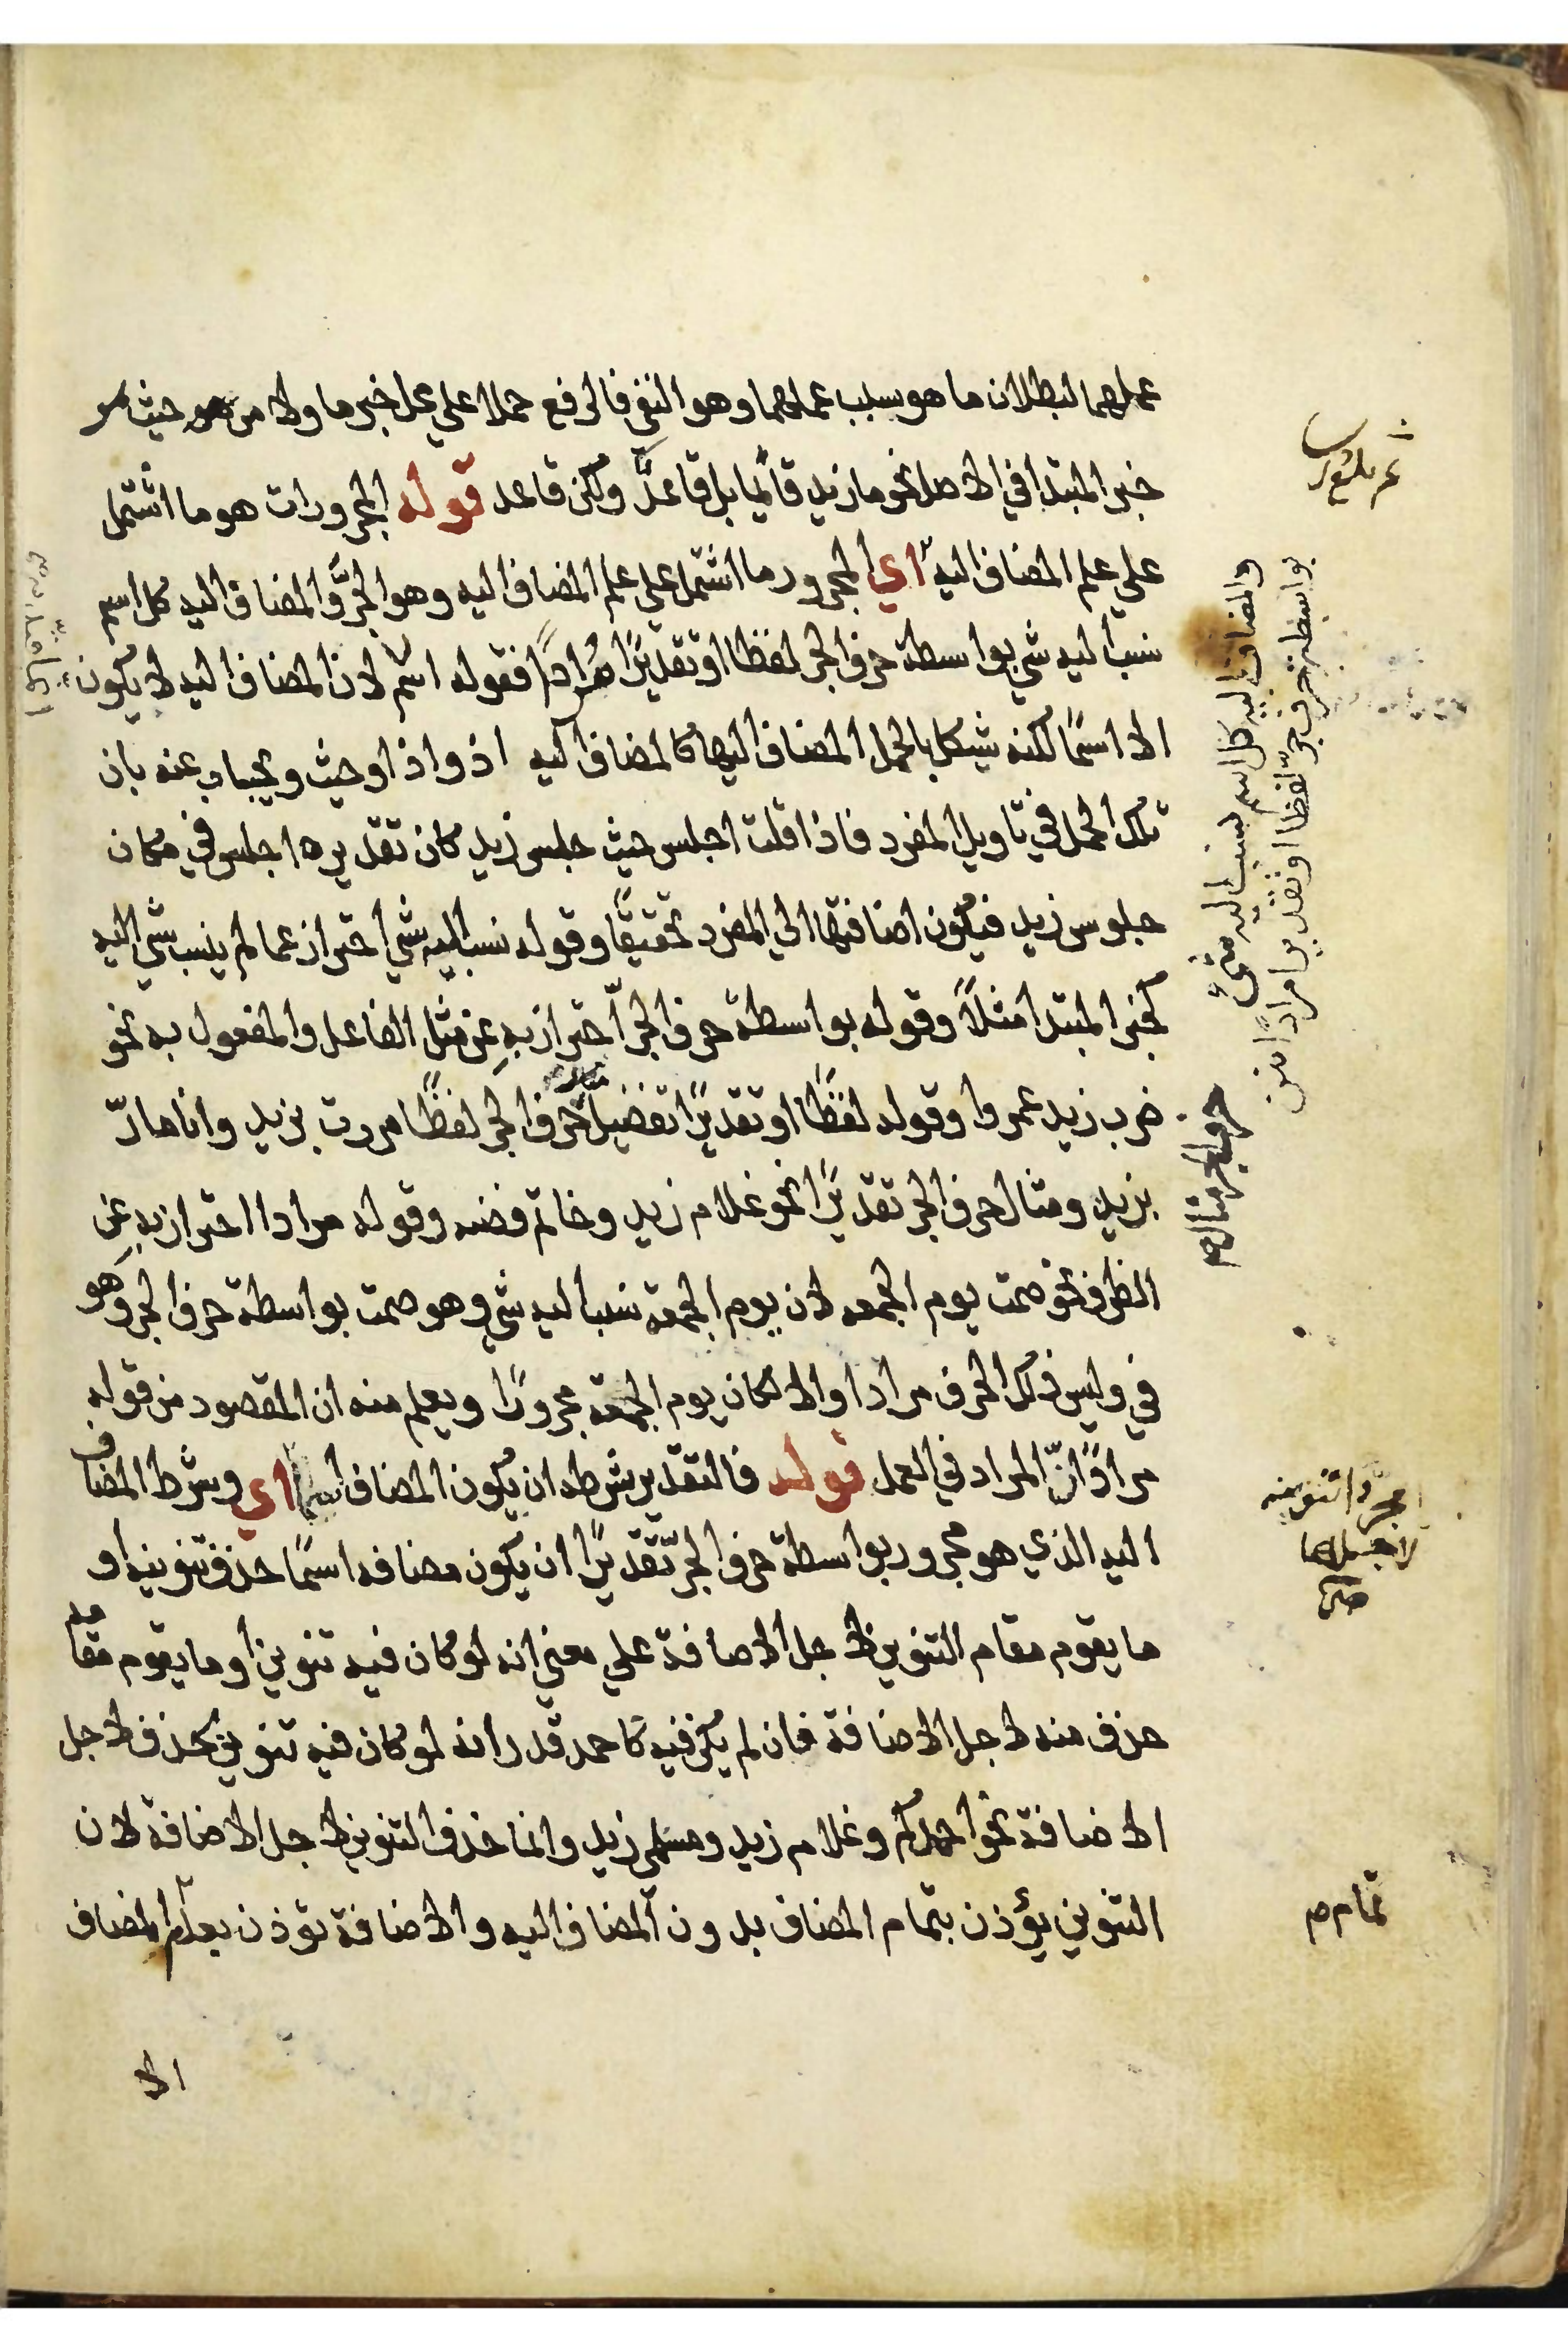 عملهما لبطلان ما هو سبب عملهما وهو النفي فالرفع حملا علي محل خبر ما ولا من حيث
خبر المبتدا في الاصل نحو ما زيد قائما بل قاعدٌ ولكن قاعد قوله المجرورات هو ما اشتمل
علي علم المضاف اليه اي المجرور ما اشتمل علي علم المضاف اليه وهو الجرُّ والمضاف اليه كل اسم
نسب اليه شي بواسطة حرف الجر لفظا او تقديرًا مُرادًا فقوله اسم لان المضاف اليه لا يكون
الا اسمًا لكنه شيكل بالجمل المضاف اليها كالمضاف اليه اذ واذا وحيث ويجاب عنه بان
تلك الجمل في تاويل المفرد فاذا قلت اجلس حيث جلس زيد كان تقديره اجلس في مكان
جلوس زيد فيكون اضافتها الي المفرد تحقيقًا وقوله نسب اليه شي احتراز عما لم ينسب شي اليه
كخبر المبتدا مثلاً وقوله بواسطة حرف الجرّ احتراز به عن مثل الفاعل والمفعول به نحو
ضرب زيد عمروا وقوله لفظًا او تقديرًا تفضيل حرف الجر لفظًا مررت بزيد وانا مارّ
بزيد ومثال حرف الجر تقديرًا نحو غلام زيد وخاتم فضه وقوله مرادا احتراز به عن
الظرف نحو صمت يوم الجمعه لان يوم الجمعه نسب اليه شي وهو صمت بواسطة حرف الجر وهو
في وليس ذلك الحرف مرادا والا لكان يوم الجمعة مجرورًا ويعلم منه ان المقصود من قوله
مرادًا انّ المراد في العمل قوله فالتقدير شرطه ان يكون المضاف اسما اي وشرط المضاف
اليه الذي هو مجرور بواسطة حرف الجرّ تقديرًا ان يكون مضافه اسمًا حذف تنوينه او
ما يقوم مقام التنوين لاجل الاضافة علي معني انه لو كان فيه تنوين او ما يقوم مقامه
حذف منه لاجل الاضافة فان لم يكن فيه كاحمد قدر انه لو كان فيه تنوين يحذف لاجل
الاضافة نحو احمدكم وغلام زيد ومسلمي زيد وانما حذف التنوين لاجل الاضافة لان
التنوين يؤذن بتمام المضاف بدون المضاف اليه والاضافة تؤذن بعدم المضاف
الا
والمضاف اليه كل اسم نسب اليه شئ
بواسطة حرف جرّ لفظا او تقديرا مرادًا
حرف الجر مثال
مجرّدا تنوينه
لاجلها
صح
تمام م